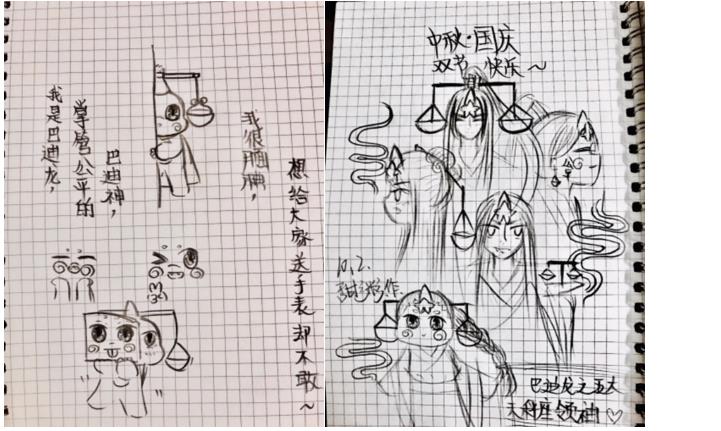 我是巴迪龙，
掌管公平的
巴迪神，
我很腼腆，
想给大家送手表却不敢～
中秋·国庆
双节 快乐～
10.2.
作
巴迪龙之五大
天秤座领袖♡